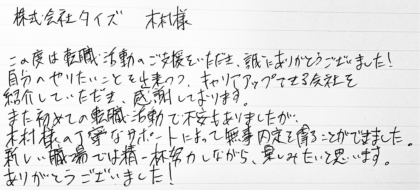 株式会社タイズ 木村様
この度は転職活動のご支援をいただき、誠にありがとうございました!
自分のやりたいことを出来つつ、キャリアアップできる会社を
紹介していただき、感謝しております。
また初めての転職活動で不安もありましたが、
木村様の丁寧なサポートによって無事内定を得ることができました。
新しい職場では精一杯努力しながら、楽しみたいと思います。
ありがとうございました!